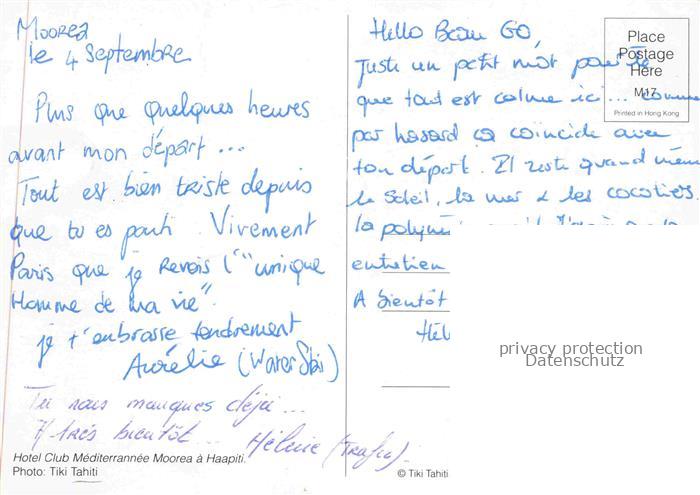 Moorea
le 4 Septembre
Plus que quelques heures
avant mon départ...
Tout est bien triste depuis
que tu es parti. Vivement
Paris que je revois l'"unique
Homme de ma vie".
je t'embrasse tendrement
Aurélie (Water Ski)
Tu nous manques déjà...
A très bientôt... Hélène (Trafic).
Hotel Club Méditerrannée Moorea à Haapiti.
Photo: Tiki Tahiti
Hello Beau GO,
Juste un petit mot pour te
que tout est calme ici... comme
par hasard ça coïncide avec
ton départ. Il reste quand même
le Soleil, la mer & les cocotiers.
la
entretien
A bientôt
Place
Postage
Here
M17
Printed in Hong Kong
© Tiki Tahiti
privacy protection
Datenschutz